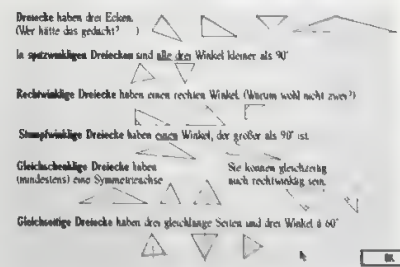 Dreiecke haben drei Ecken.
(Wer hätte das gedacht? )
In spitzwinkligen Dreiecken sind alle drei Winkel kleiner als 90°
Rechtwinklige Dreiecke haben einen rechten Winkel. (Warum wohl nicht zwei?)
Stumpfwinklige Dreiecke haben einen Winkel, der größer als 90° ist.
Gleichschenklige Dreiecke haben
(mindestens) eine Symmetrieachse
Sie können gleichzeitig
auch rechtwinklig sein.
Gleichseitige Dreiecke haben drei gleichlange Seiten und drei Winkel à 60°